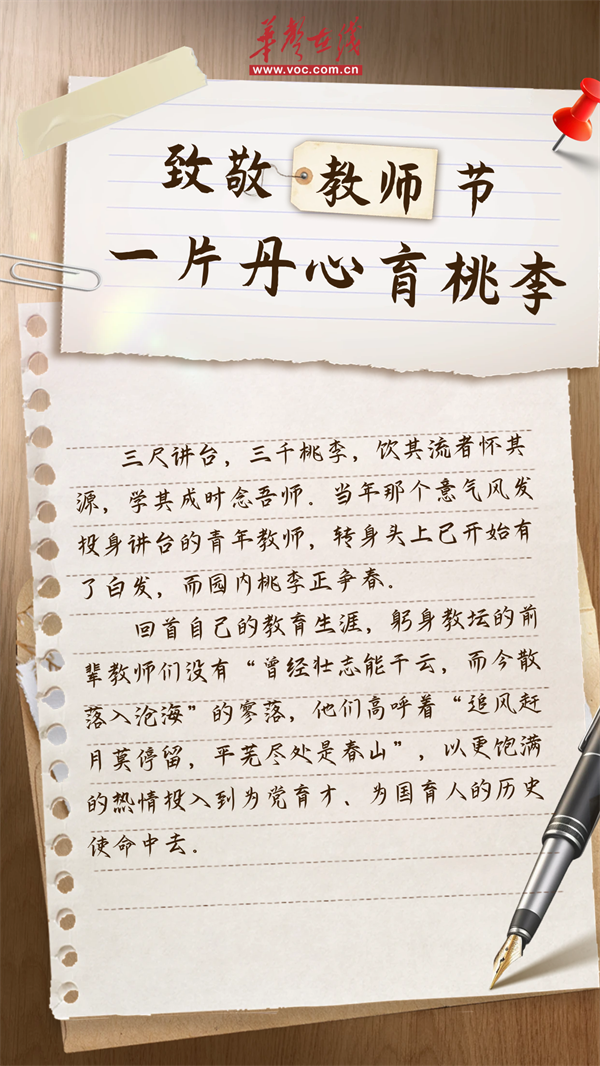 华声在线
www.voc.com.cn
致敬 教师 节
一片丹心育桃李
三尺讲台，三千桃李，饮其流者怀其
源，学其成时念吾师。当年那个意气风发
投身讲台的青年教师，转身头上已开始有
了白发，而园内桃李正争春。
回首自己的教育生涯，躬身教坛的前
辈教师们没有“曾经壮志能干云，而今散
落入沧海”的寥落，他们高呼着“追风赶
月莫停留，平芜尽处是春山”，以更饱满
的热情投入到为党育才、为国育人的历史
使命中去。